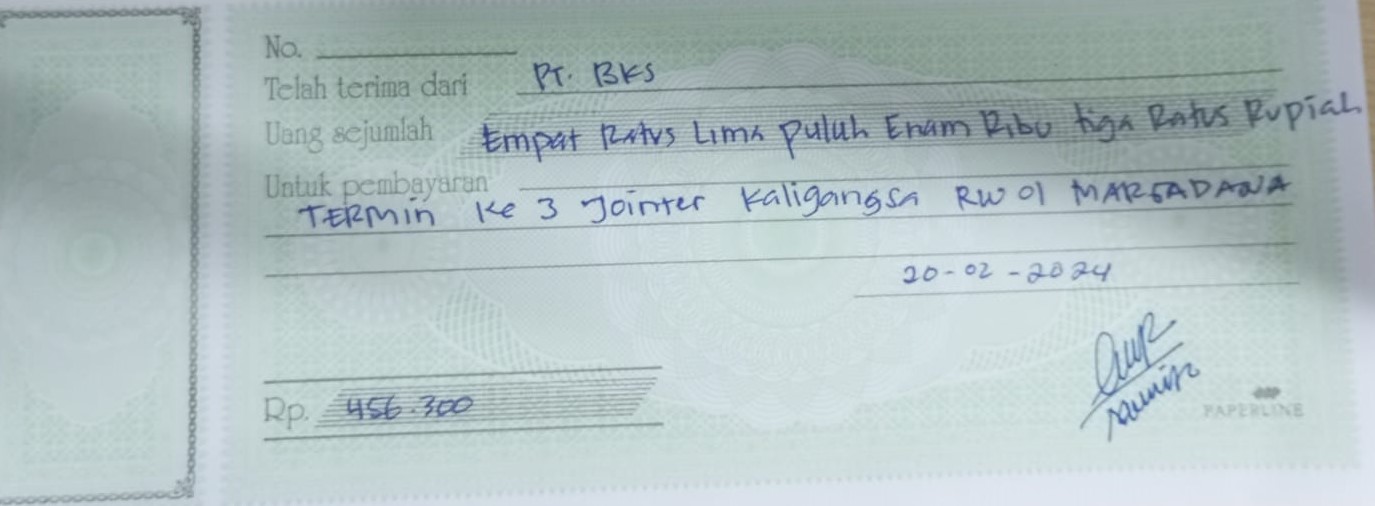 No.
Telah terima dari PT. BKS
Uang sejumlah Empat Ratus Lima puluh Enam Ribu tiga Ratus Rupiah
Untuk pembayaran
TERMin Ke 3 Jointer Kaligangsa RW 01 MARGADANA
20-02-2024
Rp. 456.300
PAPERLINE